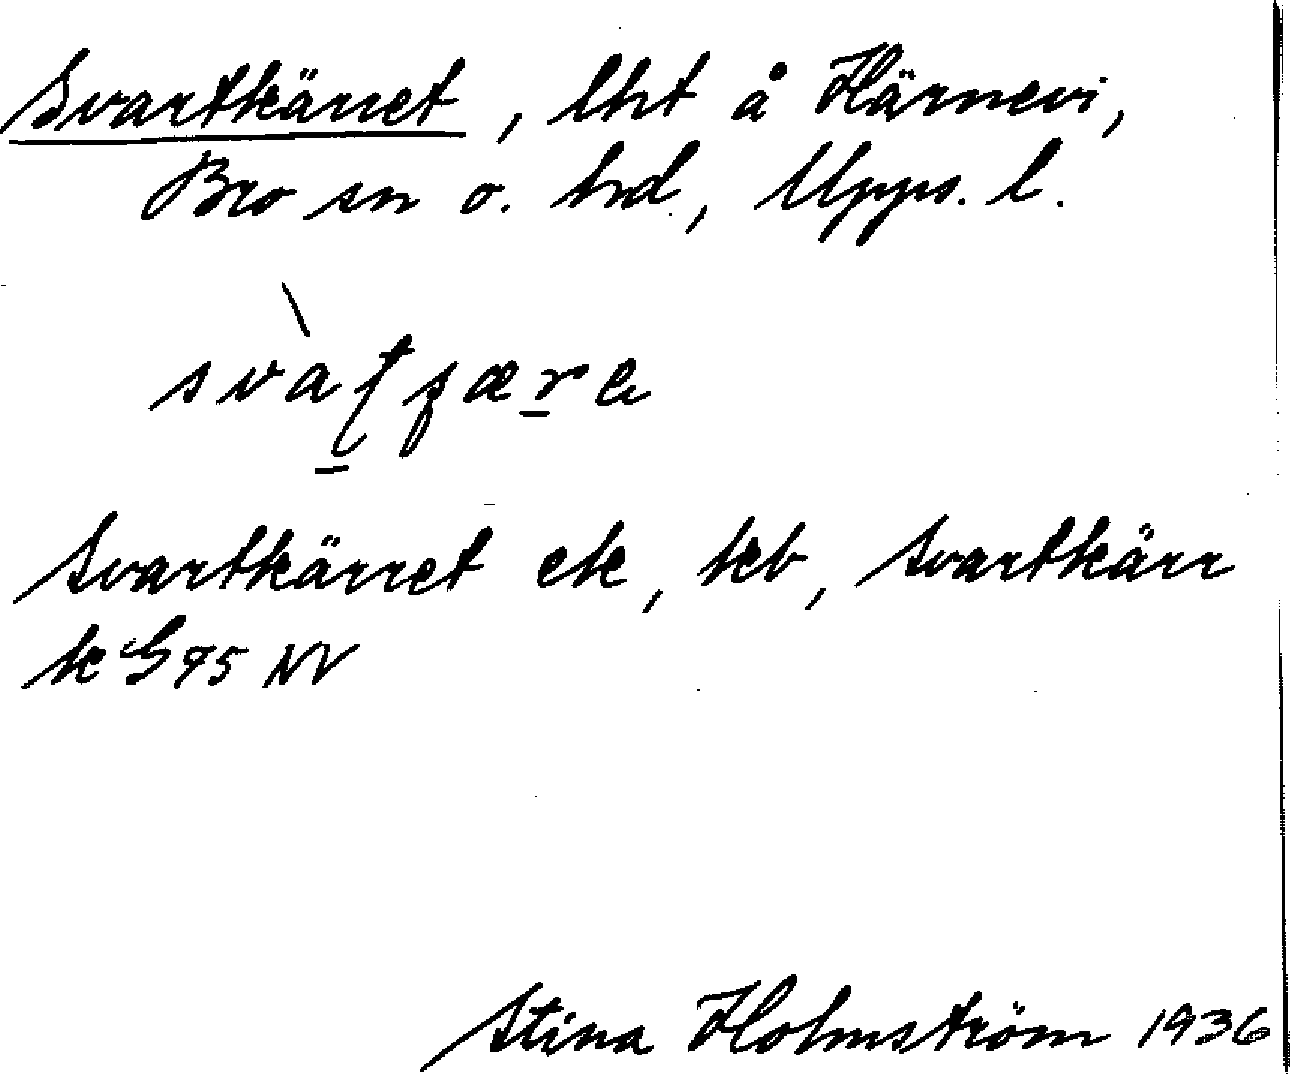 Svartkärret, lht å Härnevi,
Bro sn o. hd, Upps. l.
Svartkärret ek, kb, Svartkärr
k G 95 NV
Stina Holmström 1936